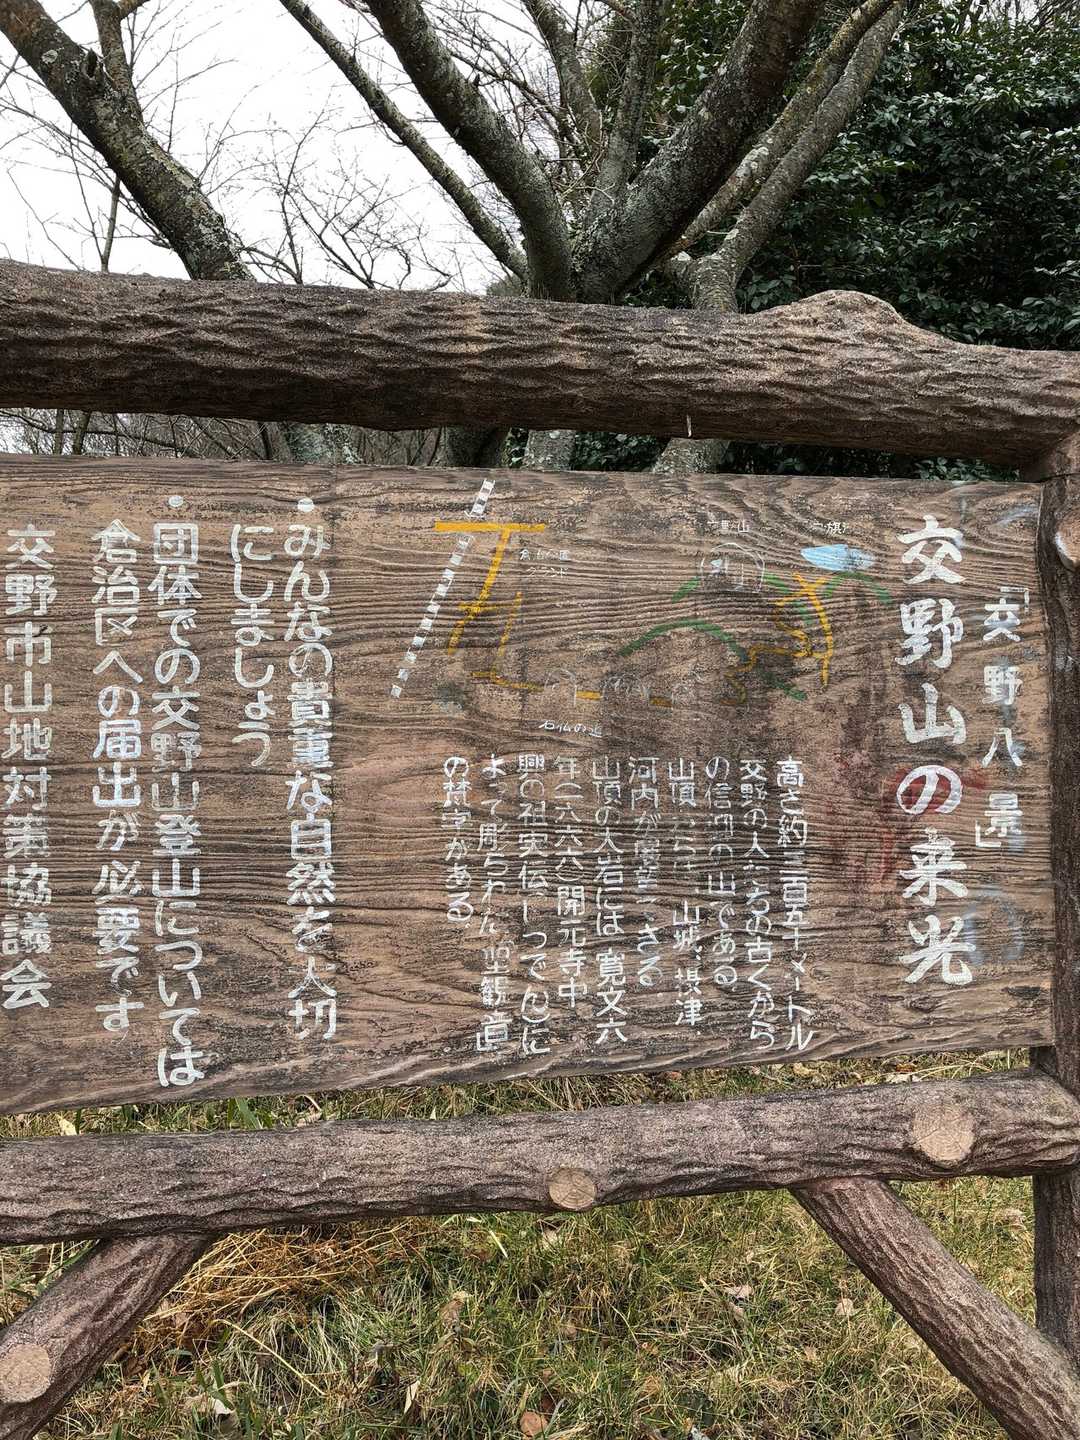 「交野八景」
交野山の来光
高さ約三百五十メートル
交野の人々の古くから
の信仰の山である
山頂からは、山城、摂津
河内が展望できる
山頂の大岩には寛文六
年(一六六六)開元寺中
興の祖実伝(じつでん)に
よって彫られた「聖観音」
の梵字がある
石仏の道
・みんなの貴重な自然を大切
にしましょう
・団体での交野山登山については
倉治区への届出が必要です
交野市山地対策協議会